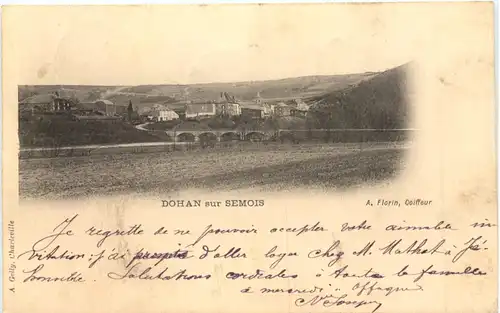 DOHAN sur SEMOIS
A. Florin, Coiffeur
A. Gelly, Charleville
Je regrette de ne pouvoir accepter votre aimable in
vitation. j'ai promis d'aller loger chez M. Mathot à
Salutations cordiales à toute la famille
à mercredi